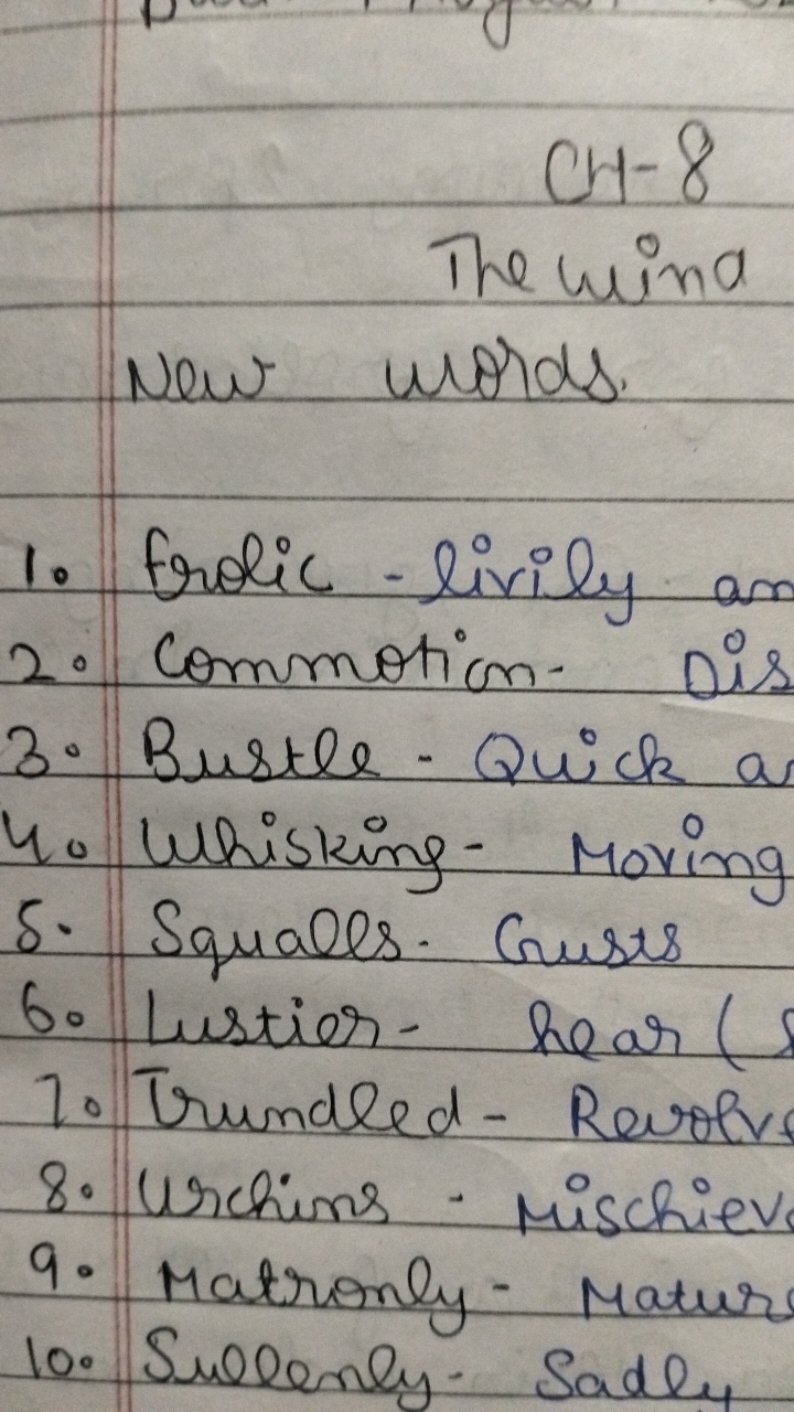 CH-8
The wind
New words.
1. frolic - livily an
2. Commotion - Dis
3. Bustle - Quick a
4. Whisking - Moving
5. Squalls - Gusts
6. Lustier - hear (
7. Trundled - Revolve
8. Urchins - Mischiev
9. Matronly - Matur
10. Sullenly - Sadly